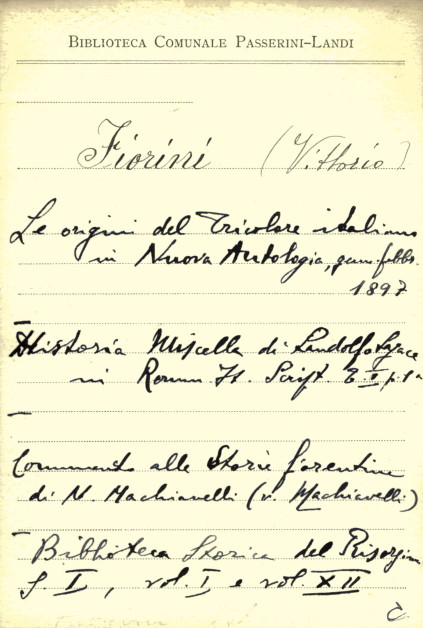 BIBLIOTECA COMUNALE PASSERINI-LANDI
Fiorini (Vittorio)
Le origini del Tricolore italiano
in Nuova Antologia, genn. febb.
1897
Historia Miscella di Landolfo Sagace
in Rerum It. Script. T. I p. 1a
Commento alle Storie fiorentine
di N. Machiavelli (v. Machiavelli)
Biblioteca Storica del Risorgim
S. I, vol. I e vol. XII